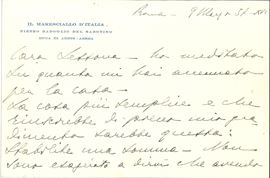 Roma - 9 Marzo 37. XV
IL MARESCIALLO D'ITALIA
PIETRO BADOGLIO DEL SABOTINO
DUCA DI ADDIS ABEBA
Cara Lessona - ho meditato
su quanto mi hai accennato
per la casa -
La cosa più semplice e che
di pieno mio
dimento sarebbe questa:
Stabilite una somma - Non
sono esagerato a dirvi che avendo